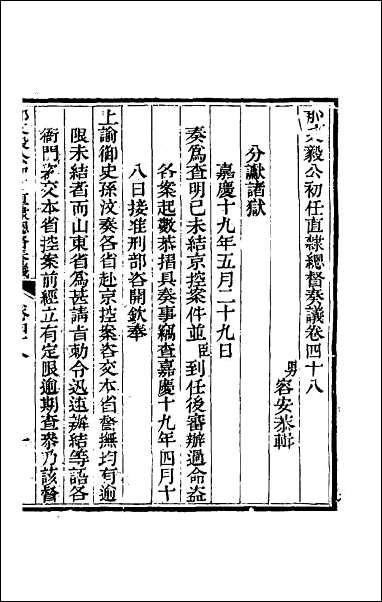 那文毅公初任直隸總督奏議卷四十八
男容安恭輯
分讞諸獄
嘉慶十九年五月二十九日
奏為查明已未結京控案件並臣到任後審辦過命盜
各案起數恭摺具奏事竊查嘉慶十九年四月十
八日接准刑部咨開欽奉
上諭御史孫汶奏各省赴京控案咨交本省督撫均有逾
限未結者而山東省為甚請旨勅令迅速辦結等語各
衙門咨交本省控案前經立有定限逾期查參乃該督